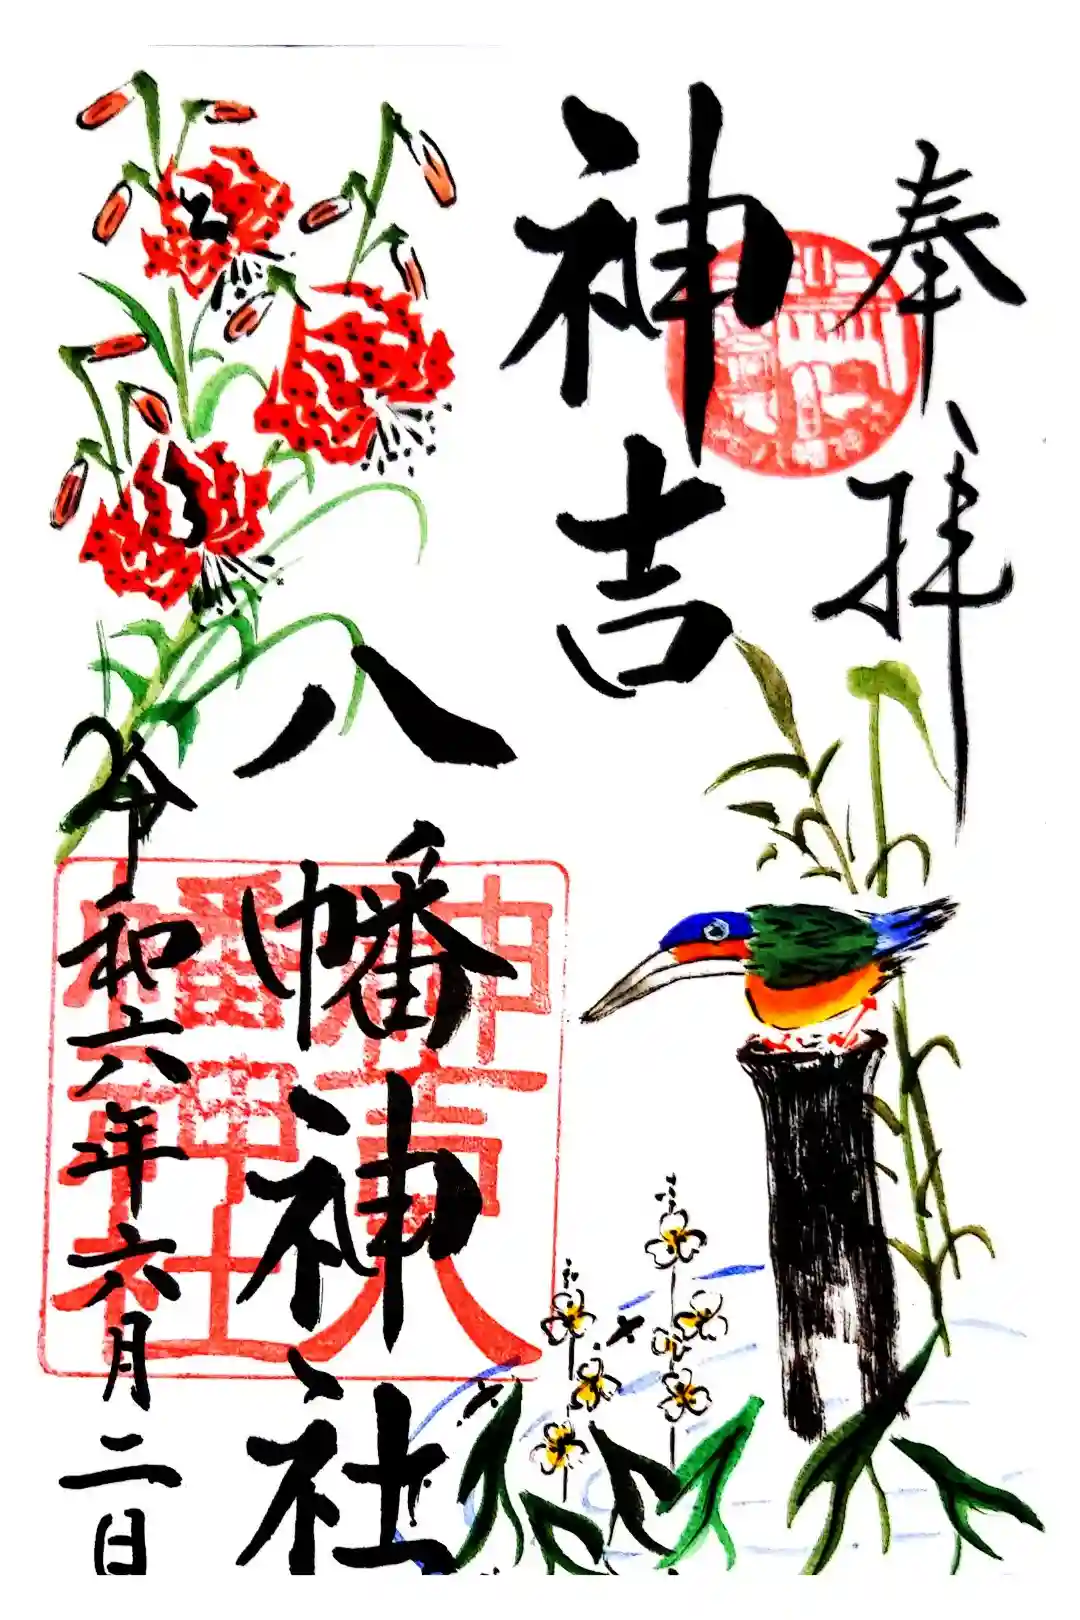 奉拝
神吉
八幡神社
令和六年六月二日
神吉八幡神社